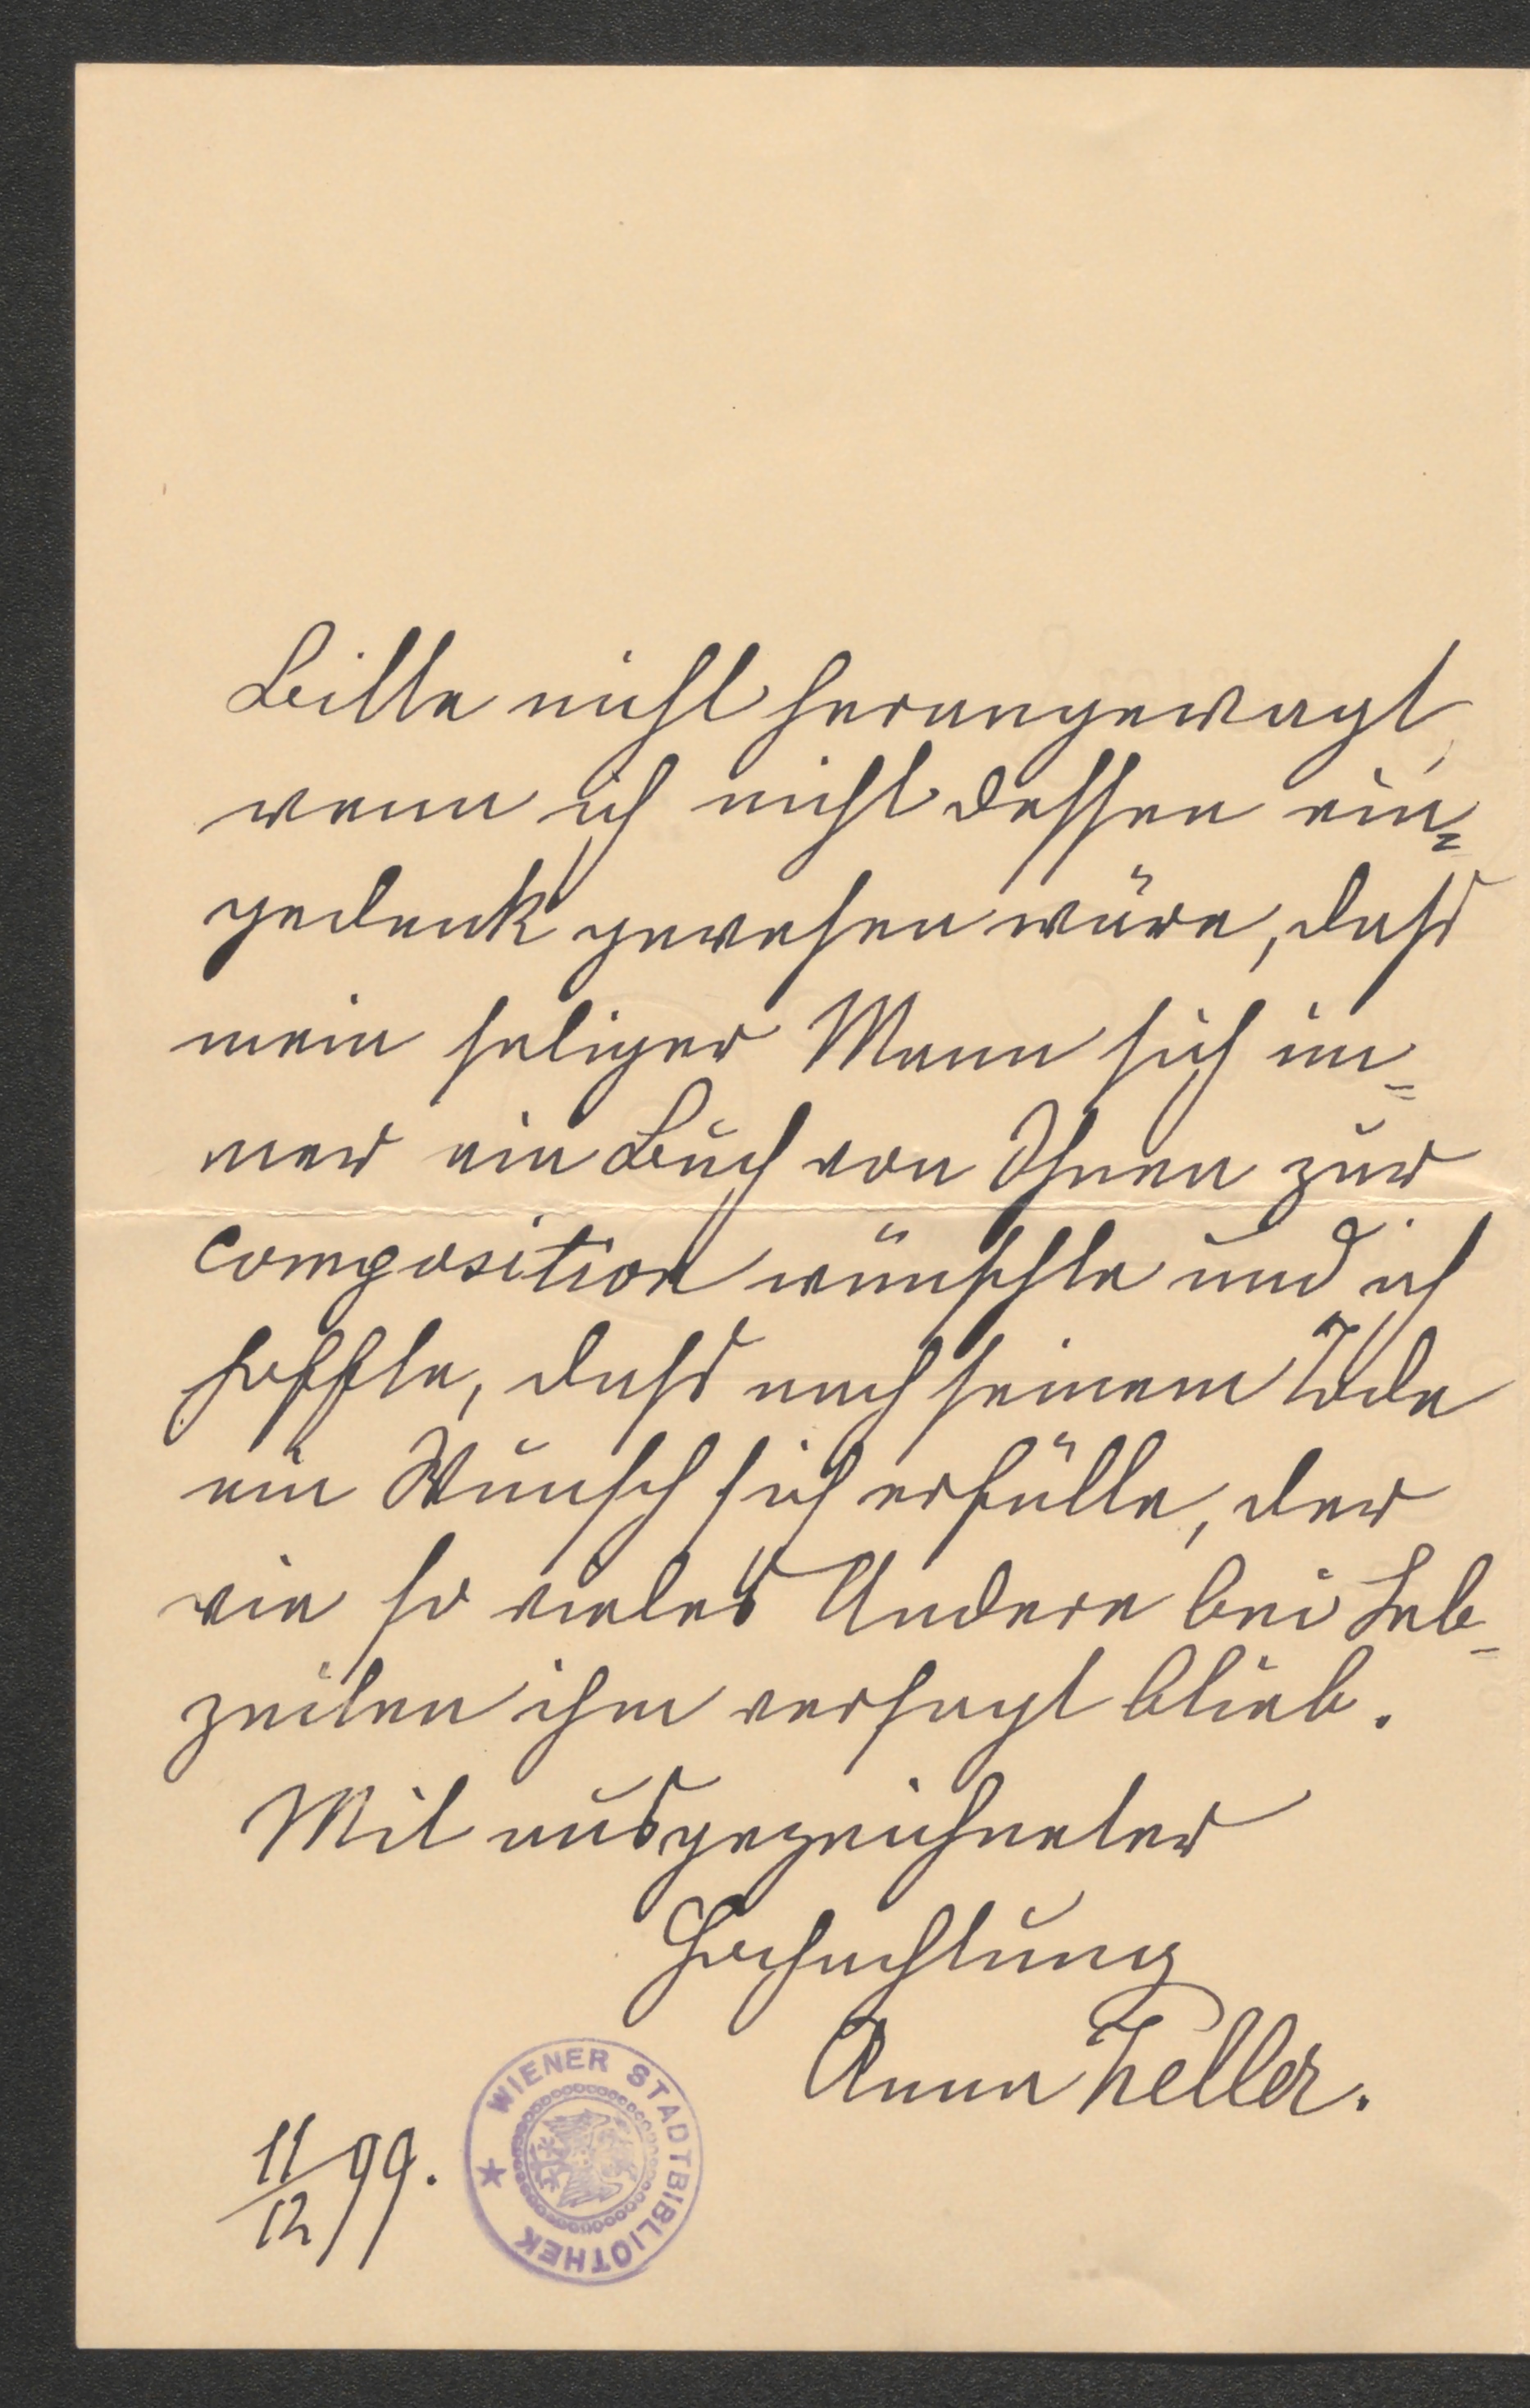 Bitte nicht herangewagt,
wenn ich nicht dessen ein=
gedenk gewesen wäre, dass
mein seliger Mann sich im=
mer ein Buch von Ihnen zur
composition wünschte und ich
hoffte, dass nach seinem Tode
ein Wunsch sich erfülle, der
wie so vieles Andere bei Leb=
zeiten ihm versagt blieb.
Mit ausgezeichneter
Hochachtung
Anna Zeller.
11/12 99.
WIENER STADTBIBLIOTHEK